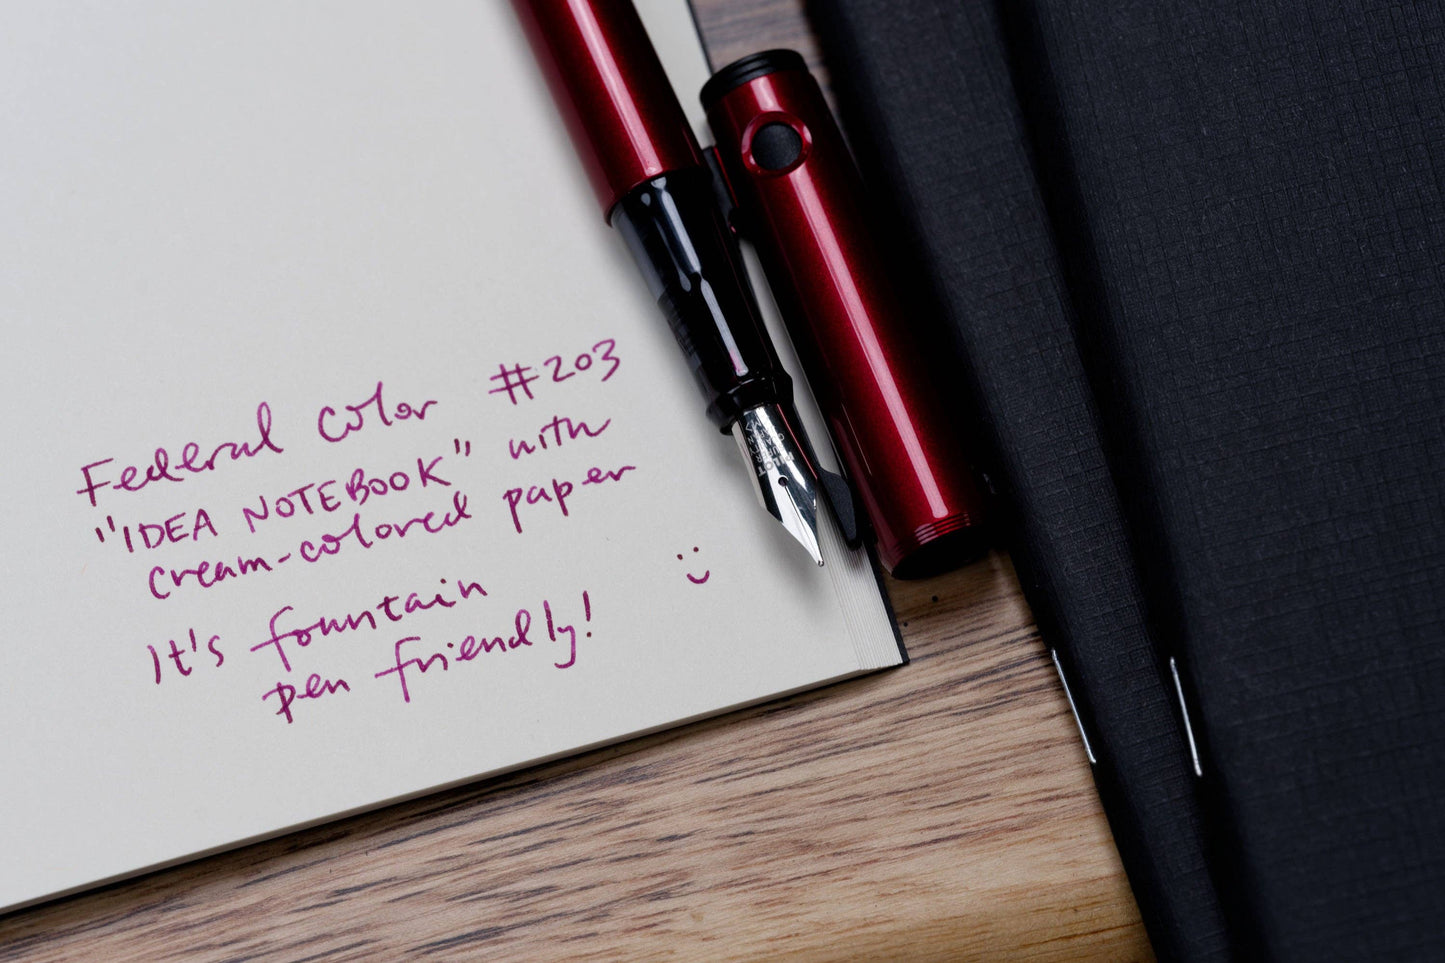 Federal Color #203
"IDEA NOTEBOOK" with
cream-colored paper
It's fountain
pen friendly!
PILOT
SUPER
QUALITY